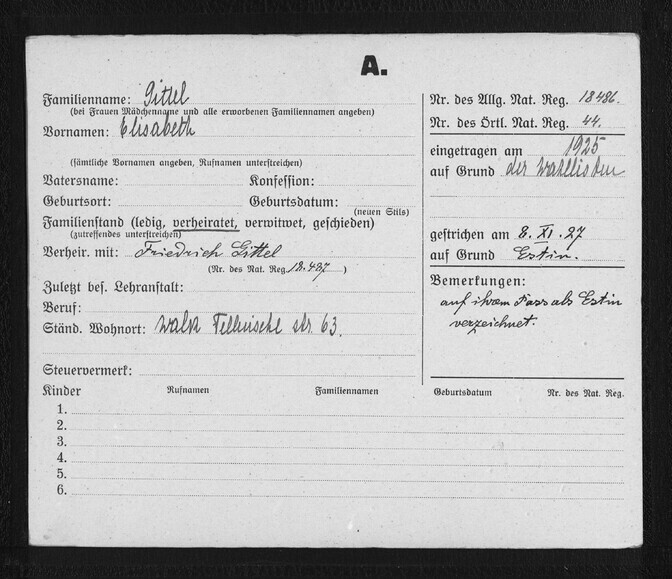 A.
Familienname: Gittel
(bei Frauen Mädchenname und alle erworbenen Familiennamen angeben)
Vornamen: Elisabeth
(sämtliche Vornamen angeben, Rufnamen unterstreichen)
Vatersname: Konfession:
Geburtsort: Geburtsdatum:
(neuen Stils)
Familienstand (ledig, verheiratet, verwitwet, geschieden)
(zutreffendes unterstreichen)
Verheir. mit: Friedrich Gittel
(Nr. des Nat. Reg. 18.487)
Zuletzt bes. Lehranstalt:
Beruf:
Ständ. Wohnort: Walk Fellinsche str. 63.
Steuervermerk:
Nr. des Allg. Nat. Reg. 18486.
Nr. des Örtl. Nat. Reg. 44.
eingetragen am 1925
auf Grund der Wahllisten
gestrichen am 8. XI. 27
auf Grund Estin.
Bemerkungen:
auf ihrem Pass als Estin
verzeichnet.
Kinder Rufnamen Familiennamen Geburtsdatum Nr. des Nat. Reg.
1.
2.
3.
4.
5.
6.